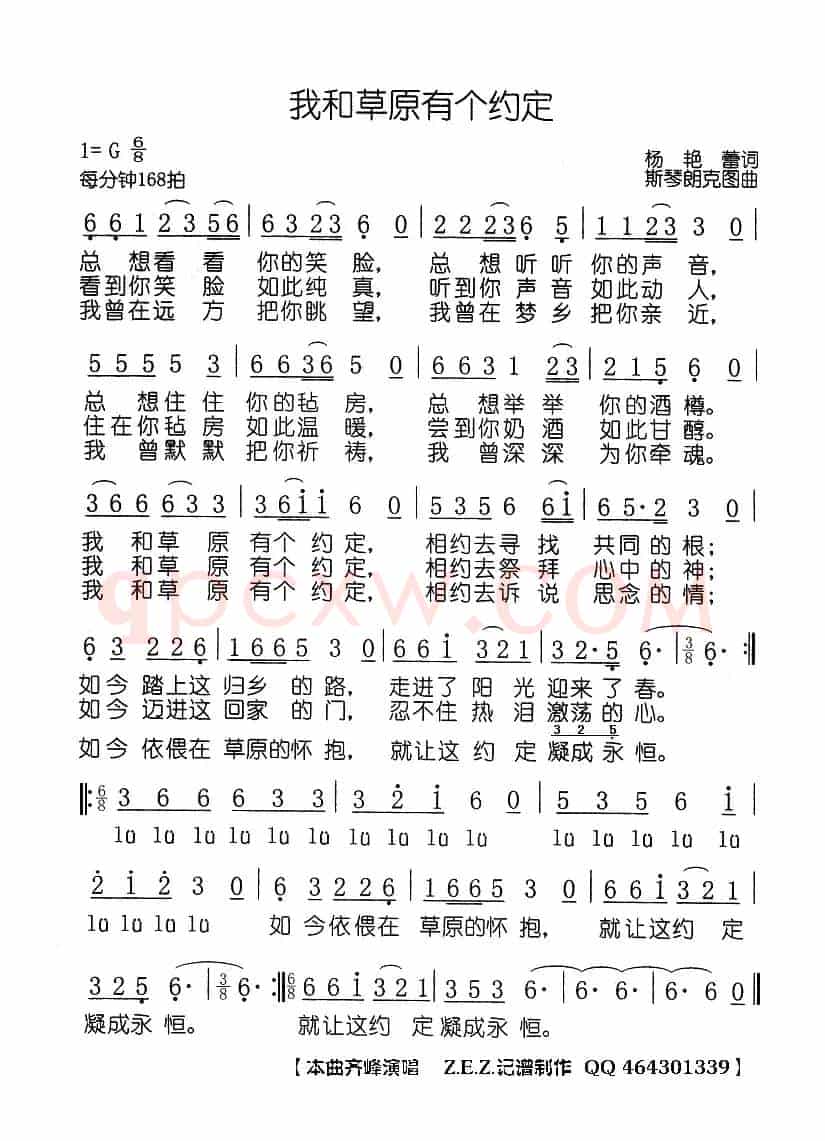 我和草原有个约定
1= G 6/8
杨 艳 蕾词
每分钟168拍
斯琴朗克图曲
6 6 1 2 3 5 6 | 6 3 2 3 6 0 | 2 2 2 3 6 5 | 1 1 2 3 3 0 |
总 想看 看 你的笑 脸, 总 想 听 听 你 的 声 音,
看到你笑 脸 如此纯 真, 听到你 声 音 如此动 人,
我曾在远 方 把你眺 望, 我曾在 梦 乡 把你亲 近,
5 5 5 5 3 | 6 6 3 6 5 0 | 6 6 3 1 2 3 | 2 1 5 6 0 |
总 想住 住 你的毡 房, 总 想举 举 你的酒 樽。
住在你毡 房 如此温 暖, 尝到你奶 酒 如此甘 醇。
我 曾默默 把你祈 祷, 我 曾深深 为你牵 魂。
3 6 6 6 3 3 | 3 6 i i 6 0 | 5 3 5 6 6 i | 6 5· 2 3 0 |
我 和草 原 有个 约 定, 相约去寻 找 共同 的 根;
我 和草 原 有个 约 定, 相约去祭 拜 心中 的 神;
我 和草 原 有个 约 定, 相约去诉 说 思念 的 情;
qpcxw.COM
6 3 2 2 6 | 1 6 6 5 3 0 | 6 6 i 3 2 1 | 3 2· 5 6· | 3/8 6· :‖
如今 踏上这 归乡 的 路, 走进了 阳 光 迎来 了 春。
如今 迈进这 回家 的 门, 忍不住 热 泪 激荡 的 心。
3 2 5
如今 依偎在 草原的怀 抱, 就让这 约 定 凝成 永 恒。
‖: 6/8 3 6 6 6 3 3 | 3 2 i 6 0 | 5 3 5 6 i |
lu lu lu lu lu lu lu lu lu lu lu lu lu lu lu
2 i 2 3 0 | 6 3 2 2 6 | 1 6 6 5 3 0 | 6 6 i 3 2 1 |
lu lu lu lu 如 今依偎在 草原的怀 抱, 就让这约 定
3 2 5 6· | 3/8 6· :‖: 6/8 6 6 i 3 2 1 | 3 5 3 6· | 6· 6· | 6· 6 0 ‖
凝成永 恒。 就让这约 定 凝成永 恒。
【本曲齐峰演唱 Z.E.Z.记谱制作 QQ 464301339】